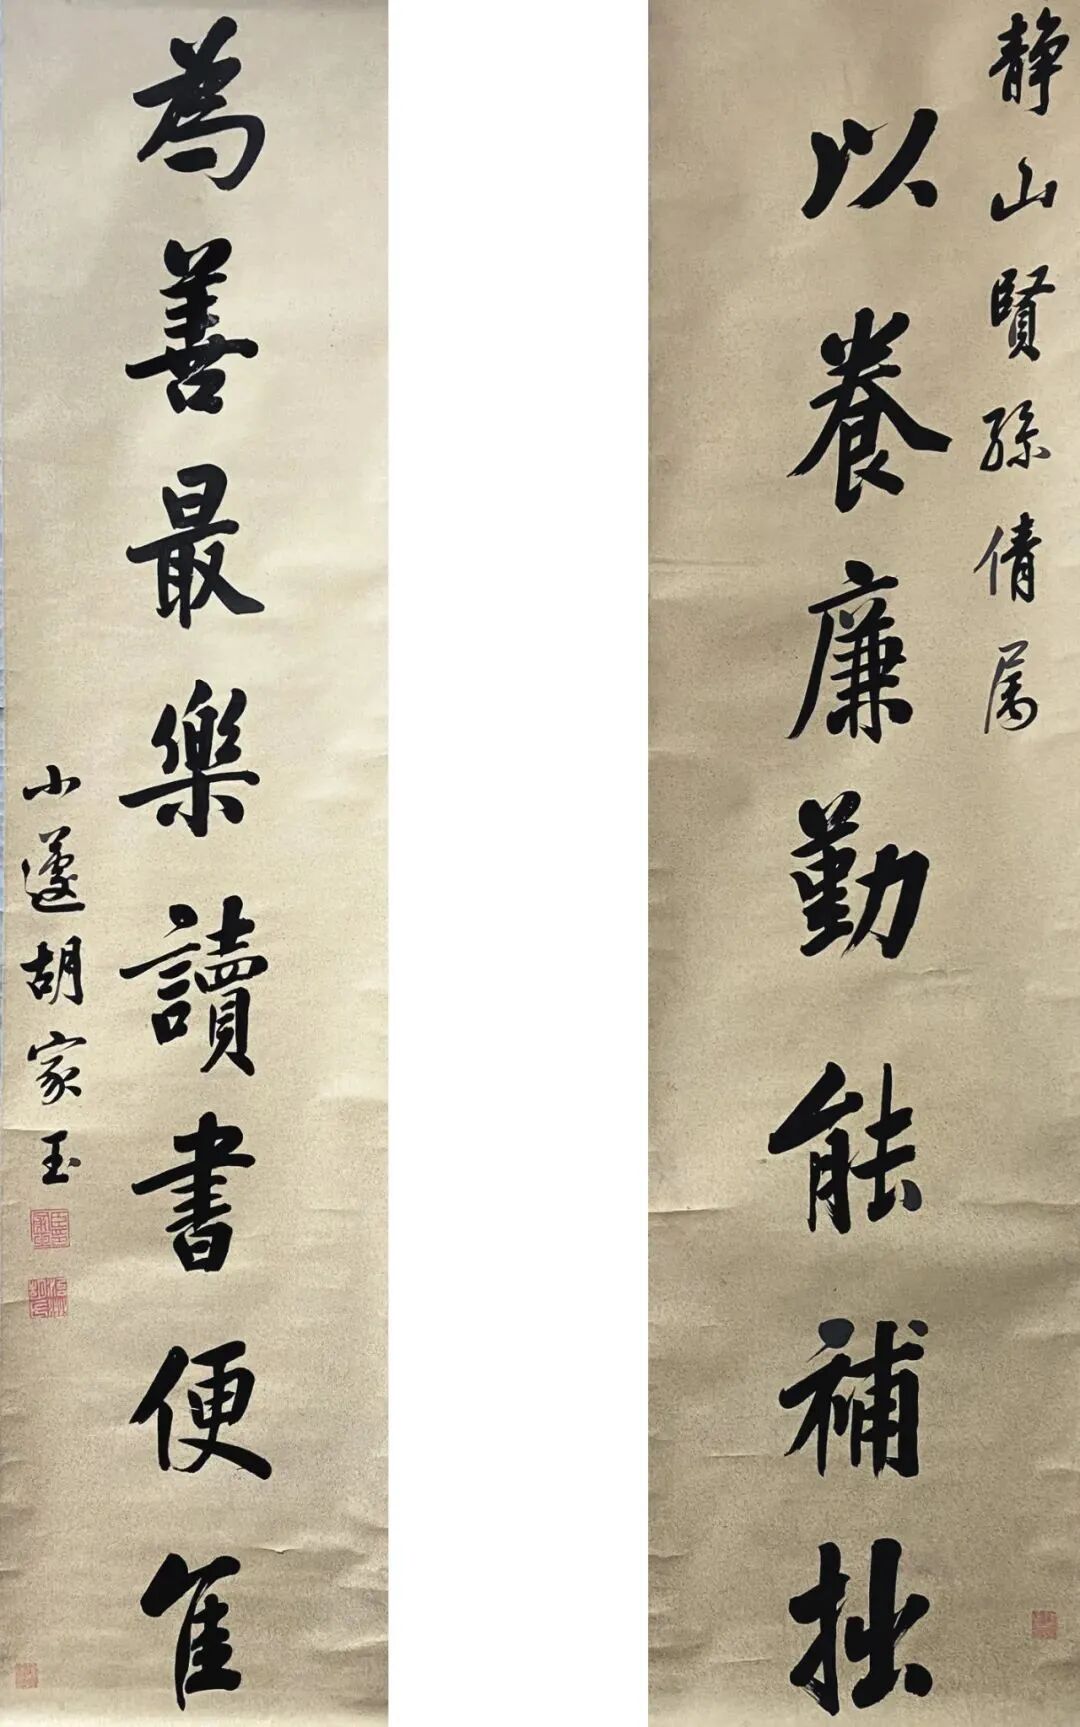 静山賢孫倩属
以養廉勤能補拙
為善最樂讀書便佳
小蘧胡家玉